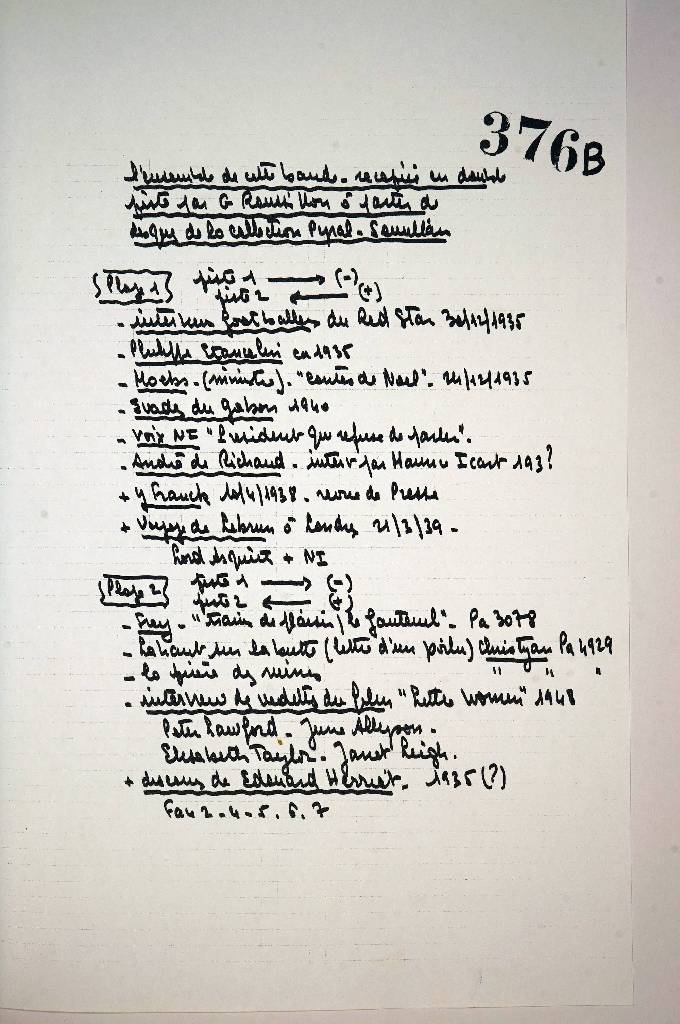 376B
L'ensemble de cette bande - recopiée en double
piste par G Roussillon à partir de
disques de la collection Pyral -
Plage 1 piste 1 → (-)
piste 2 ← (+)
- interview footballers du Red Star 30/12/1935
- Philippe en 1935
- (ministre). "contes de Noel". 24/12/1935
- Evadés du gabon 1940
- Voix NI "Président qui refuse de parler".
- André de Richaud - interv par Maurice Icart 193?
+ y Franck 10/4/1938 - revue de Presse
+ Voyage de Lebrun à Londres 21/3/39 -
Lord Asquith + NI
Plage 2 piste 1 → (-)
piste 2 ← (+)
- Frey - "train de plaisir / le fauteuil" - Pa 3078
- Là haut sur la butte (lettre d'un poilu) Christyan Pa 4929
- la prière des ruines " " "
- interview de vedettes du film "Little Women" 1948
Peter Lawford - June Allyson -
Elisabeth Taylor - Janet Leigh.
+ discours de Edouard Herriot - 1935 (?)
Fau 2-4-5. 6. 7